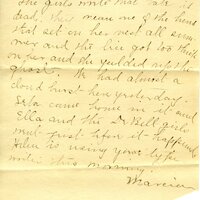 The girls write that Kate is
dead, this means one of the hens
that set on her nest all sum-
mer and the lice got too thick
on her and she yielded up the
ghost. We had almost a
cloud burst here yesterday.
came home in it and
Ella and the Bell girls
went just before it happened
Helen is using your type
writer this morning.